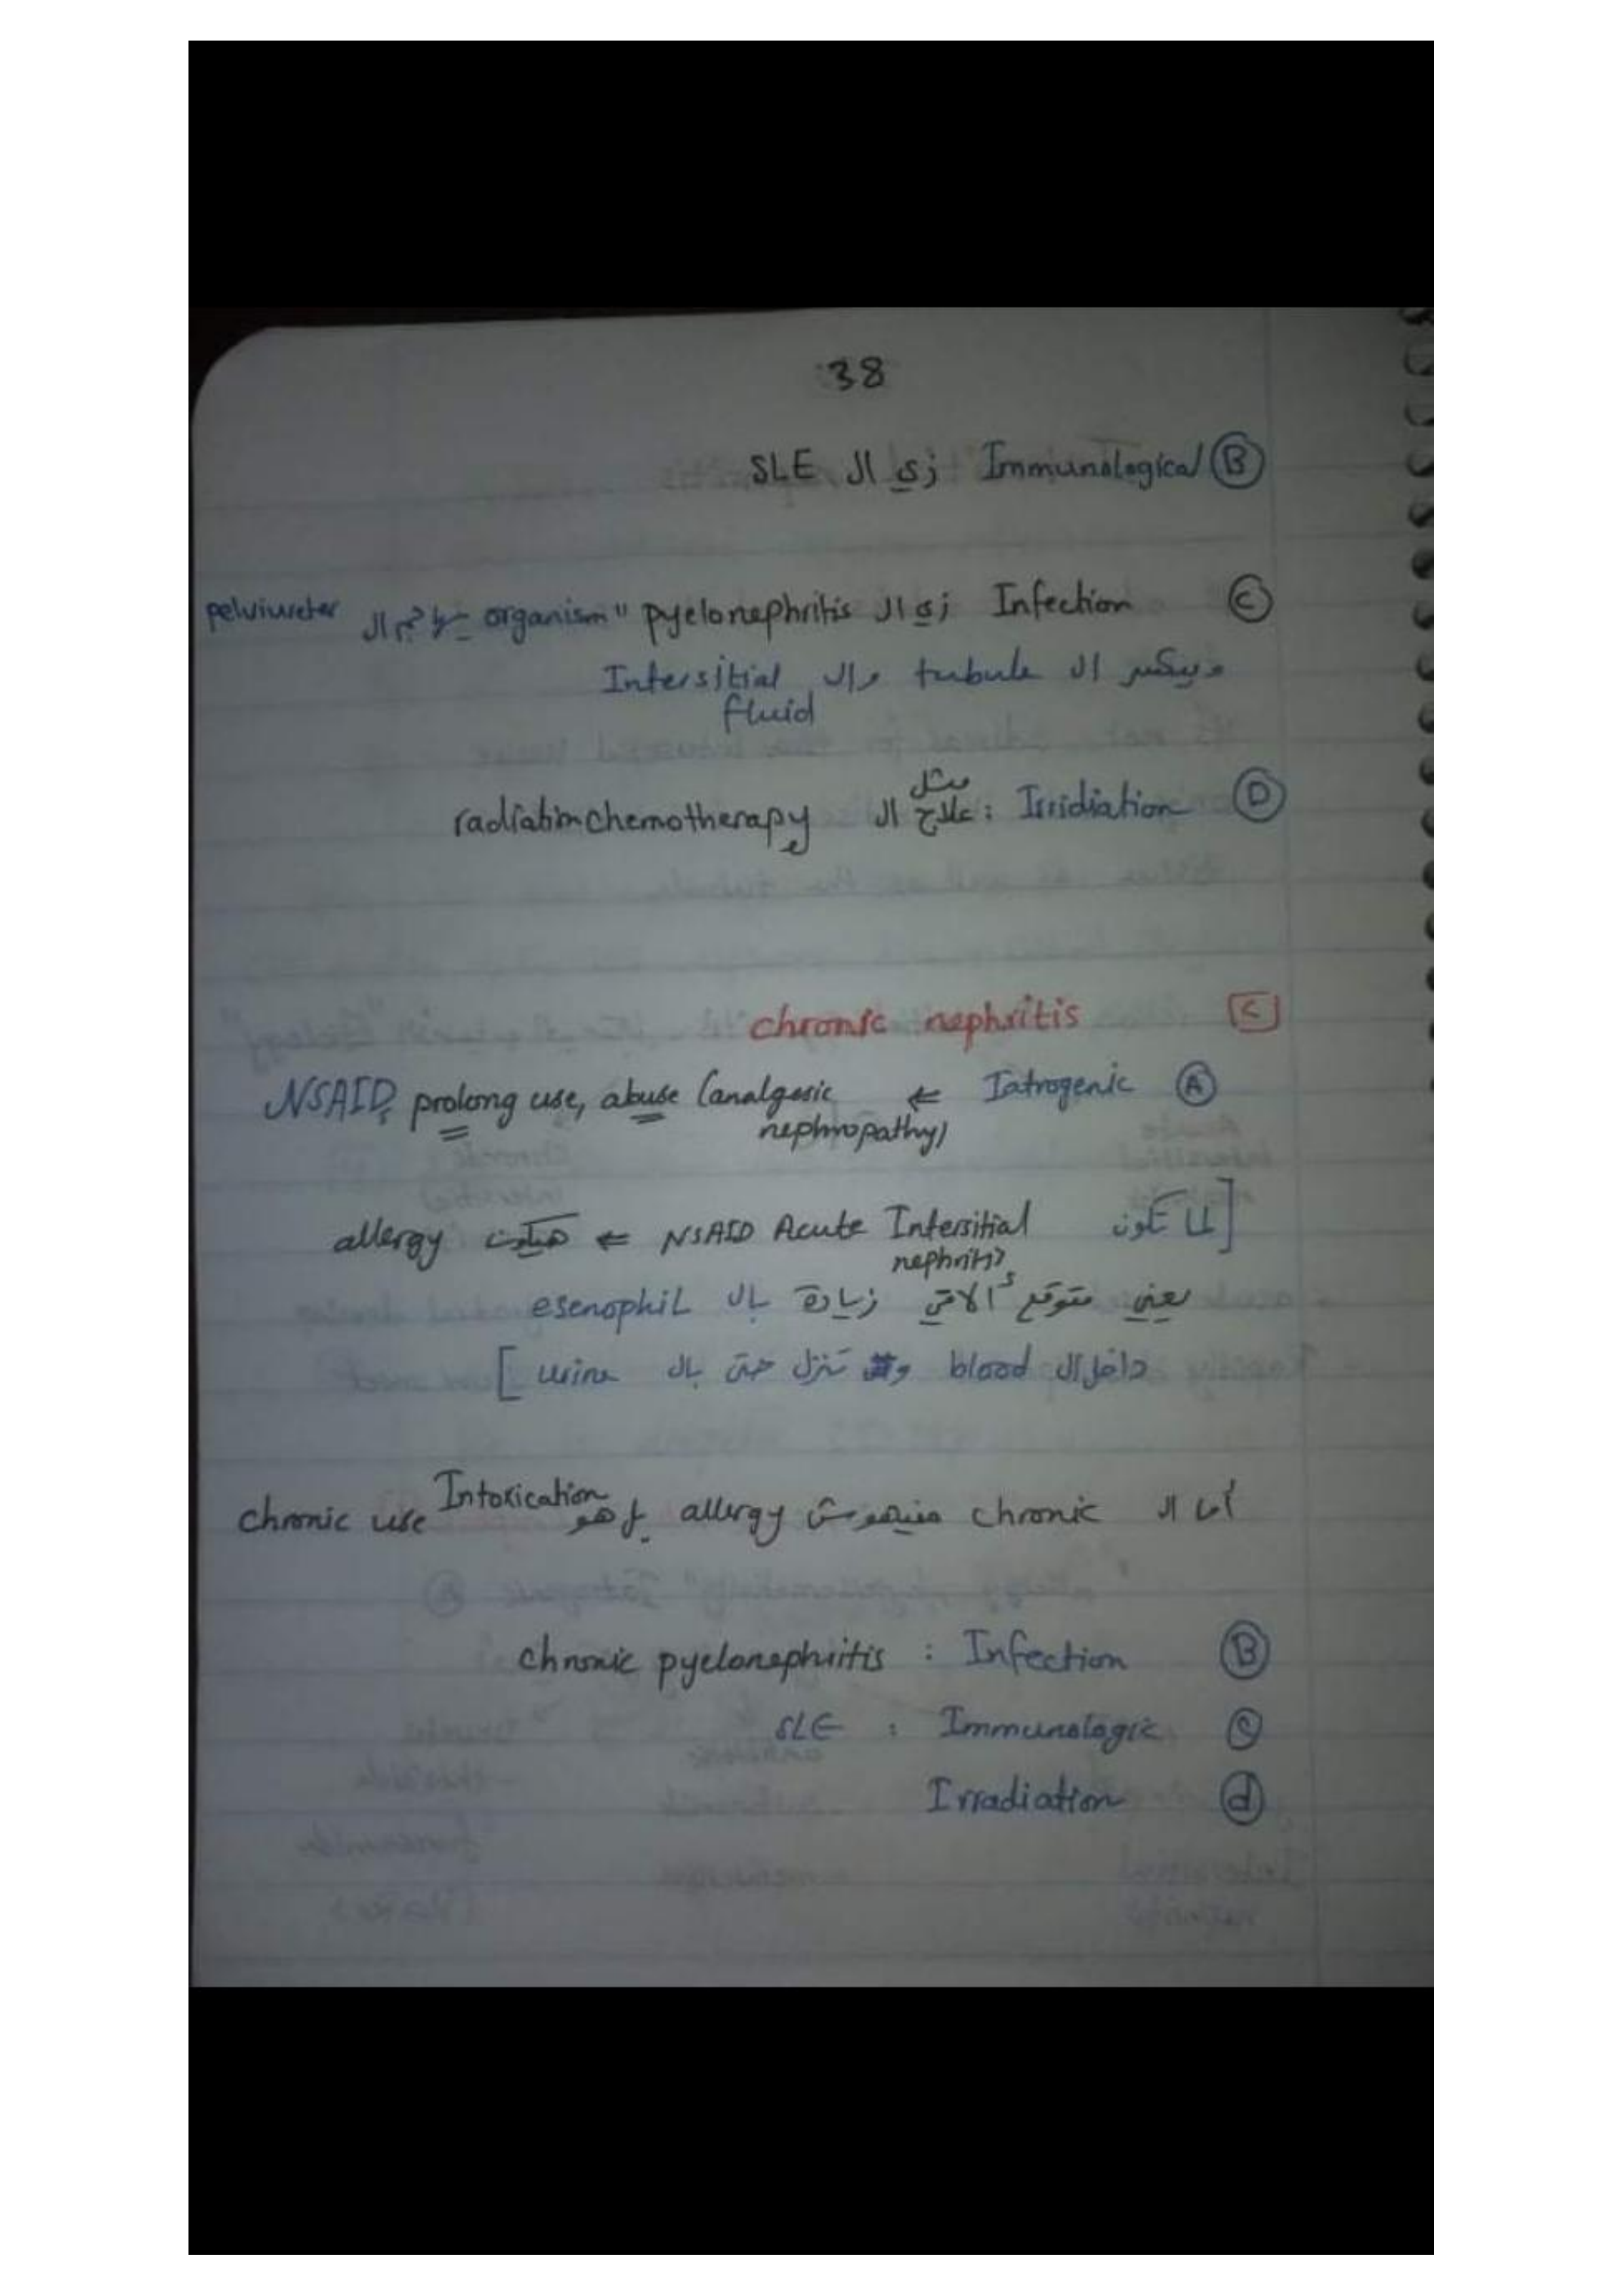 38
Ⓑ Immunological زي ال SLE
Ⓒ Infection زي ال pyelonephritis "organism بيهاجم ال pelviureter
وبيكسر ال tubule وال Intersitial
fluid
Ⓓ Irridiation : مثل علاج ال radiation و chemotherapy
[C] chronic nephritis
Ⓐ Iatrogenic ⇐ NSAID, prolong use, abuse (analgesic
nephropathy)
[لما تكون NSAID Acute Intersitial ⇐ هيكون allergy
nephritis
يعني متوقع ألاقي زيادة بال esenophil
داخل ال blood و تنزل حتى بال urine [
أما ال chronic منيهوش allergy بل هو Intoxication chronic use
Ⓑ Infection : chronic pyelonephritis
Ⓒ Immunologic : SLE
ⓓ Irradiation